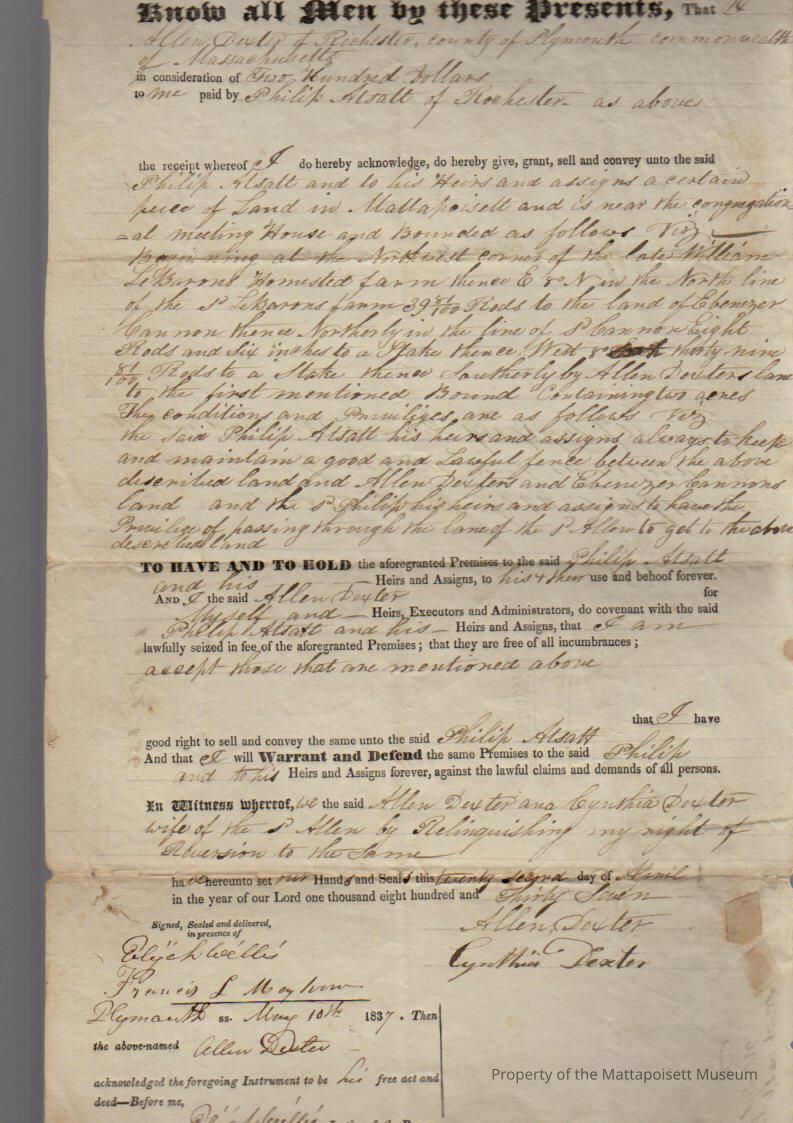 Know all Men by these Presents, That I
Allen Dexter of Rochester, county of Plymouth commonwealth
of Massachusetts
in consideration of Two Hundred Dollars
to me paid by Philip Atsatt of Rochester as above
the receipt whereof I do hereby acknowledge, do hereby give, grant, sell and convey unto the said
Philip Atsatt and to his Heirs and assigns a certain
peice of Land in Mattapoisett and is near the congregation
=al meeting House and Bounded as follows Viz
Beginning at the Northwest corner of the late William
LeBarons Homested farm thence E & N in the North line
of the sd LeBarons farm 39 81/100 Rods to the land of Ebenezer
Cannon thence Northerly in the line of sd Cannon Eight
Rods and Six inches to a Stake thence West & thirty nine
81/100 Rods to a Stake thence Southerly by Allen Dexters lane
to the first mentioned Bound Containing two acres
The conditions and Priviliges are as follows Viz
the Said Philip Atsatt his heirs and assigns always to keep
and maintain a good and Lawful fence between the above
described land and Allen Dexters and Ebenezer Cannons
land and the sd Philip his heirs and assigns to have the
Privilige of passing through the lane of the sd Allen to get to the above
described land
TO HAVE AND TO HOLD the aforegranted Premises to the said Philip Atsatt
and his Heirs and Assigns, to his & their use and behoof forever.
AND I the said Allen Dexter for
Myself and Heirs, Executors and Administrators, do covenant with the said
Philip Atsatt and his Heirs and Assigns, that I am
lawfully seized in fee of the aforegranted Premises; that they are free of all incumbrances;
accept those that are mentioned above
that I have
good right to sell and convey the same unto the said Philip Atsatt
And that I will Warrant and Defend the same Premises to the said Philip
and to his Heirs and Assigns forever, against the lawful claims and demands of all persons.
In Witness whereof, we the said Allen Dexter and Cynthia Dexter
wife of the sd Allen by Relinquishing my right of
Reversion to the Same
have hereunto set our Hands and Seals this twenty second day of April
in the year of our Lord one thousand eight hundred and Thirty Seven
Signed, Sealed and delivered,
in presence of
Allen Dexter
Cynthia Dexter
Francis L Mayhew
Plymouth ss. May 10th 1837. Then
the above-named Allen Dexter
acknowledged the foregoing Instrument to be his free act and
deed—Before me,
Property of the Mattapoisett Museum